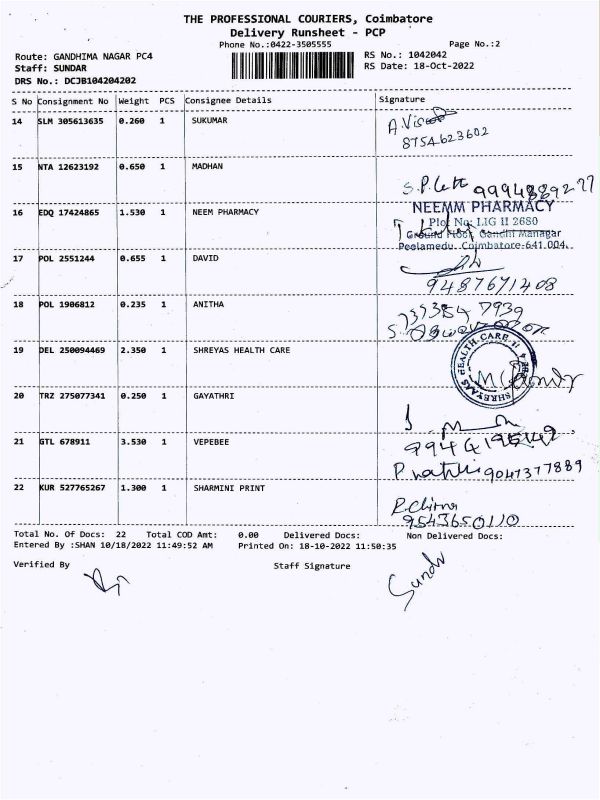 THE PROFESSIONAL COURIERS, Coimbatore
Delivery Runsheet - PCP
Phone No.:0422-3505555 Page No.:2
Route: GANDHIMA NAGAR PC4 RS No.: 1042042
Staff: SUNDAR RS Date: 18-Oct-2022
DRS No.: DCJB104204202
S No Consignment No Weight PCS Consignee Details Signature
14 SLM 305613635 0.260 1 SUKUMAR
8754623602
15 NTA 12623192 0.650 1 MADHAN
16 EDQ 17424865 1.530 1 NEEM PHARMACY
NEEMM PHARMACY
Plot No: LIG II 2680
Ground Floor, Gandhi Managar
Peelamedu. Coimbatore-641 004.
17 POL 2551244 0.655 1 DAVID
9487671408
18 POL 1906812 0.235 1 ANITHA
19 DEL 250094469 2.350 1 SHREYAS HEALTH CARE
HEALTH CARE
20 TRZ 275077341 0.250 1 GAYATHRI
21 GTL 678911 3.530 1 VEPEBEE
9047377889
22 KUR 527765267 1.300 1 SHARMINI PRINT
9543650110
Total No. Of Docs: 22 Total COD Amt: 0.00 Delivered Docs: Non Delivered Docs:
Entered By :SHAN 10/18/2022 11:49:52 AM Printed On: 18-10-2022 11:50:35
Verified By Staff Signature
Sundr